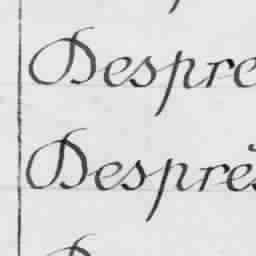 Despre
Després